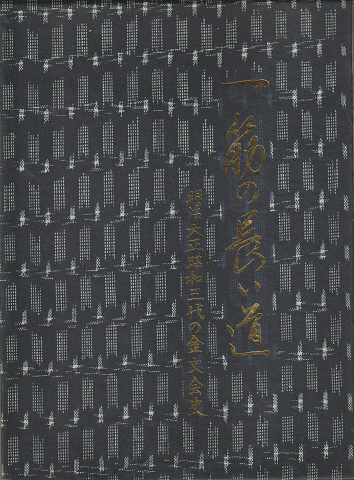 一筋の長い道
明治大正昭和三代の金文会史